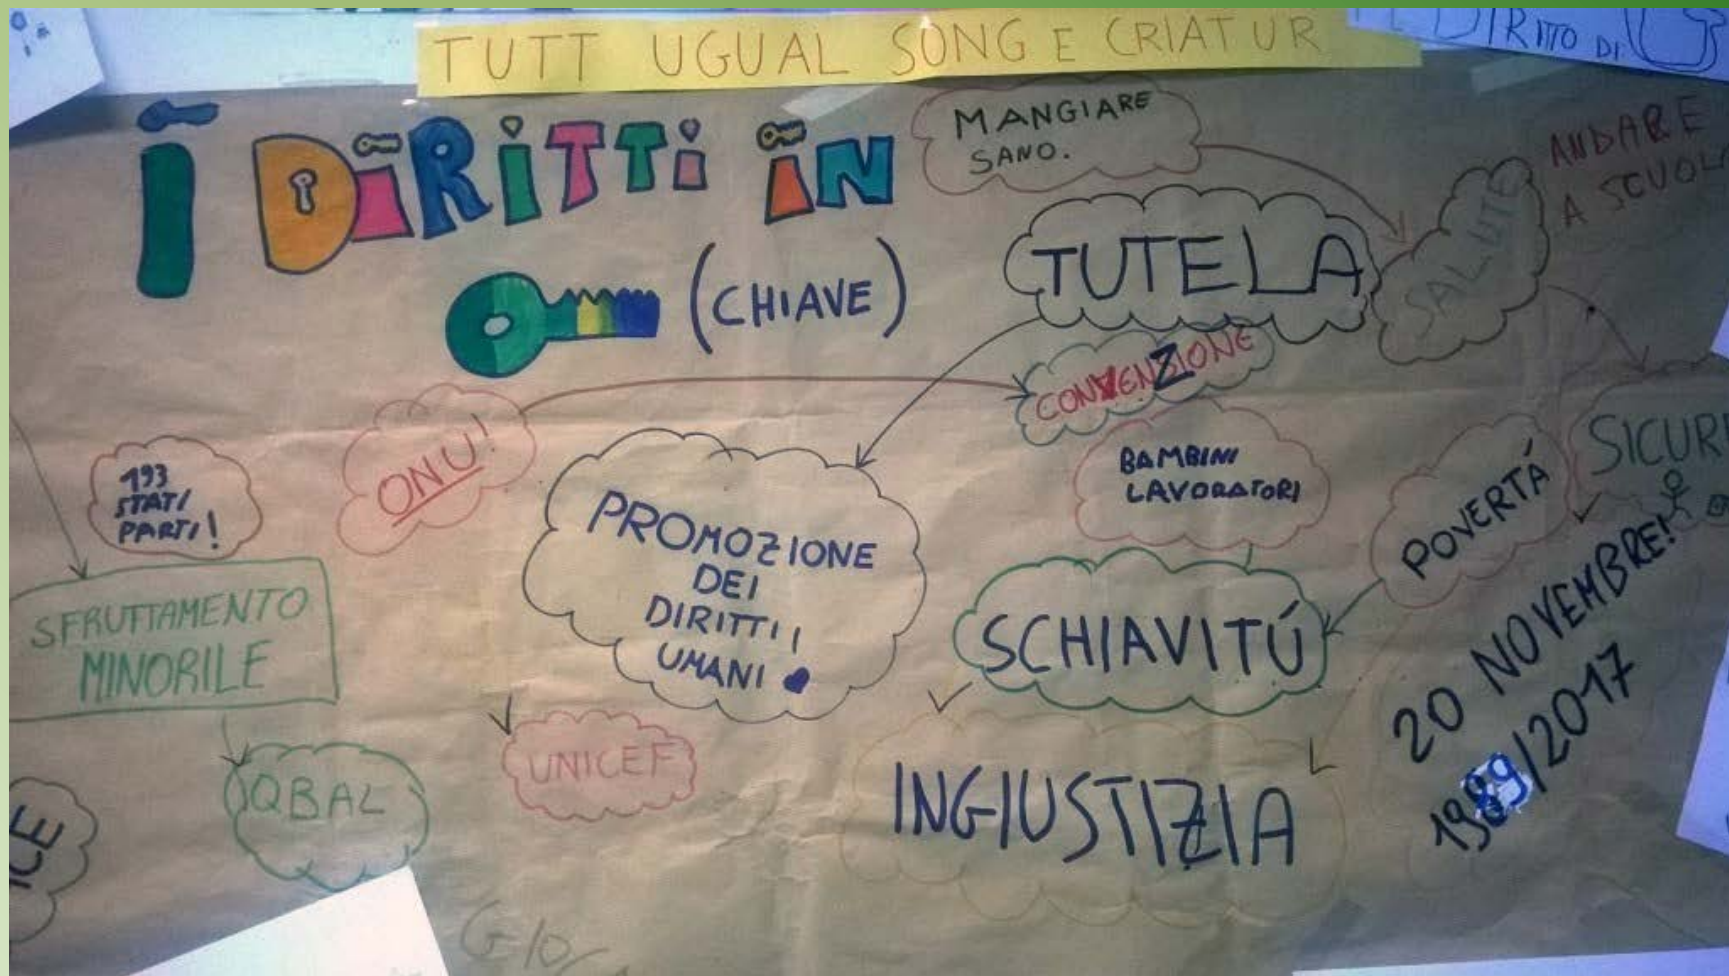 TUTT UGUAL SONG E CRIATUR
DIRITTO DI
I DIRITTI IN
(CHIAVE)
MANGIARE
SANO.
TUTELA
SALUTE
ANDARE
A SCUOL
CONVENZIONE
ONU!
193
STATI
PARTI!
BAMBINI
LAVORATORI
POVERTÁ
SICUR
PROMOZIONE
DEI
DIRITTI
UMANI
SFRUTTAMENTO
MINORILE
SCHIAVITÚ
20 NOVEMBRE!
1989/2017
UNICEF
IQBAL
INGIUSTIZIA
ICE
GIO